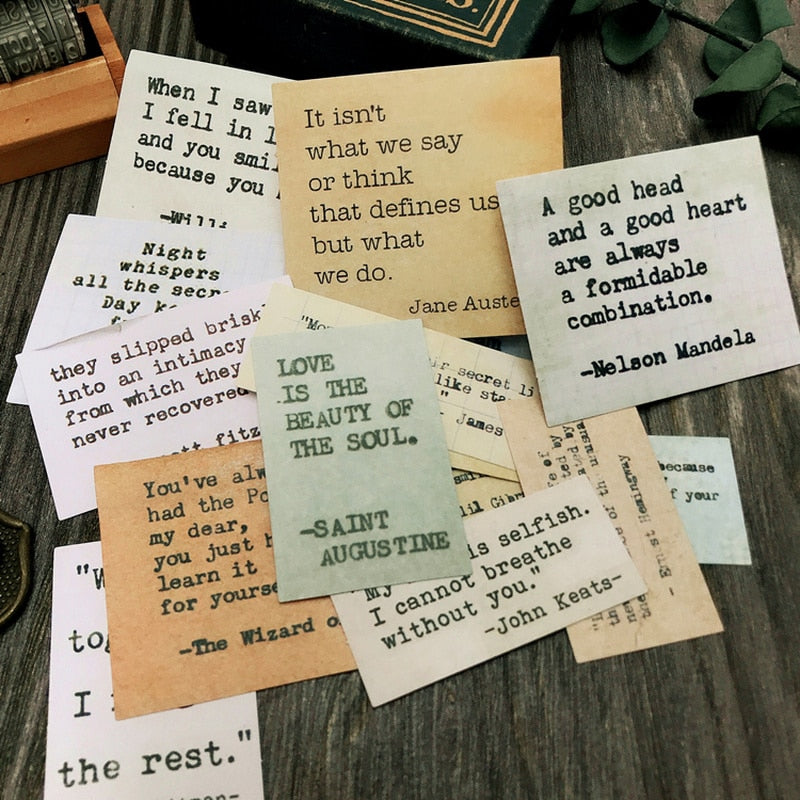 When I saw
I fell in
and you smil
because you
It isn't
what we say
or think
that defines us
but what
we do.
Jane Auste
A good head
and a good heart
are always
a formidable
combination.
-Nelson Mandela
Night
whispers
all the secr
Day
they slipped brisk
into an intimacy
from which they
never recovered
ott fitz
ir secret li
like sta
"
- James
LOVE
IS THE
BEAUTY OF
THE SOUL.
-SAINT
AUGUSTINE
You've alw
had the Po
my dear,
you just h
learn it
for yourse
-The Wizard o
lil Gibr
My is selfish.
I cannot breathe
without you."
-John Keats-
because
f your
- Ernest Hemingway
"W
tog
I
the rest."